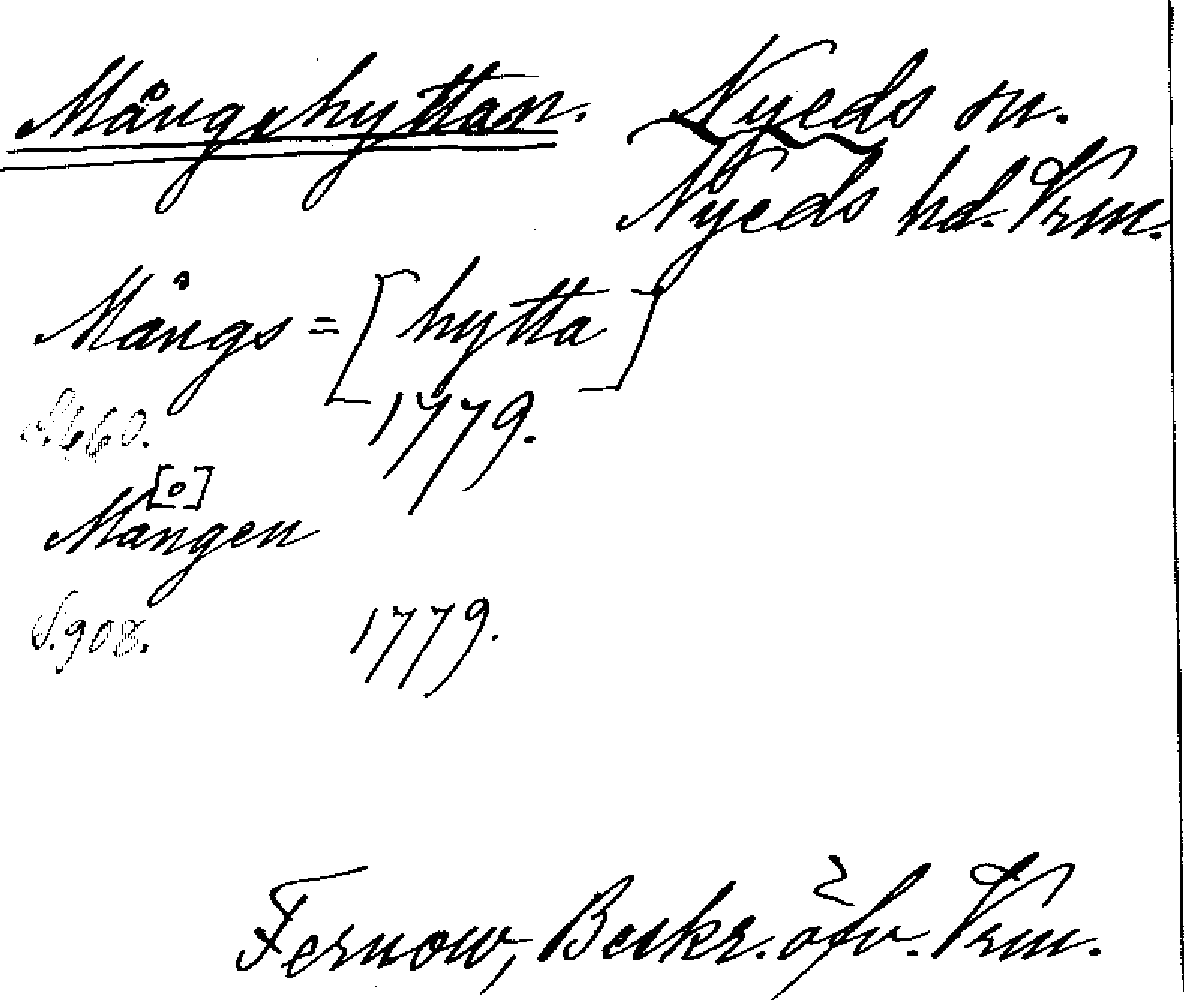 Mångshyttan. Nyeds sn.
Nyeds hd. Vrm.
Mångs=[hytta]
S. 660. 1779.
Mången
S. 908. 1779.
Fernow, Beskr. öfv. Vrm.